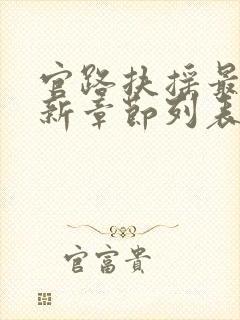 官路扶摇最
新章節列表
官富貴